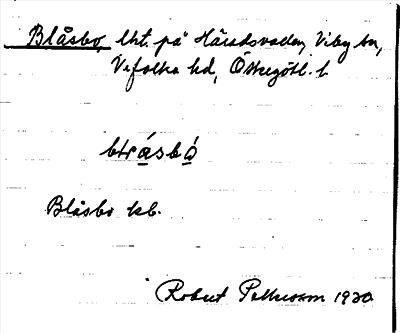 Blåsbo, lht. på Häradsvaden, Viby sn,
Vifolka hd, Östergötl. l.
blråsbo
Blåsbo kb.
Robert Pettersson 1920